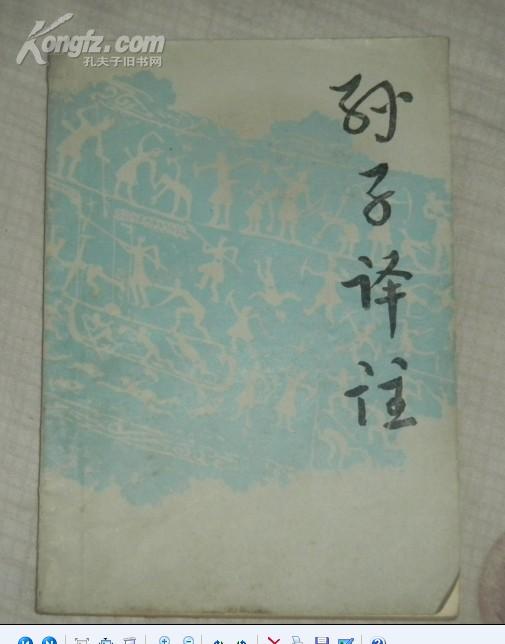 Kongfz.com
孔夫子旧书网
孙子译注